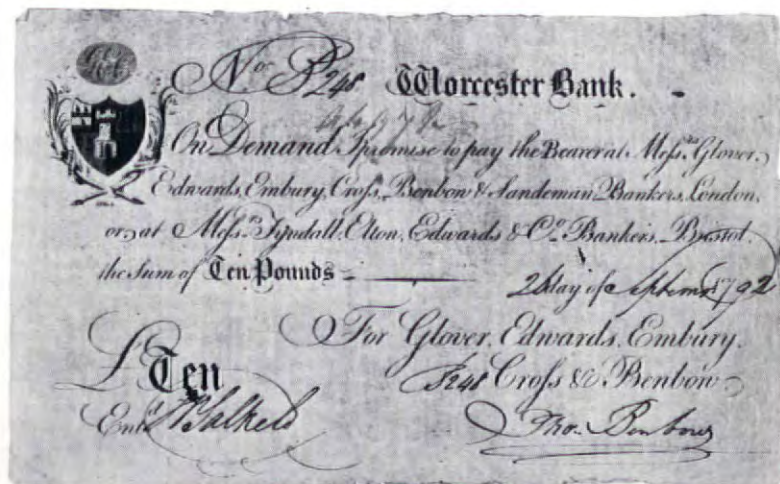 No. P248 Worcester Bank.
On Demand I promise to pay the Bearer at Messrs. Glover,
Edwards, Embury, Cross, Benbow & Sandeman Bankers, London,
or at Messrs. Tyndall, Elton, Edwards & Co. Bankers, Bristol,
the Sum of Ten Pounds
day of September 1792
For Glover, Edwards, Embury,
£ Ten
P248 Cross & Benbow
Entd.
Thos. Benbow